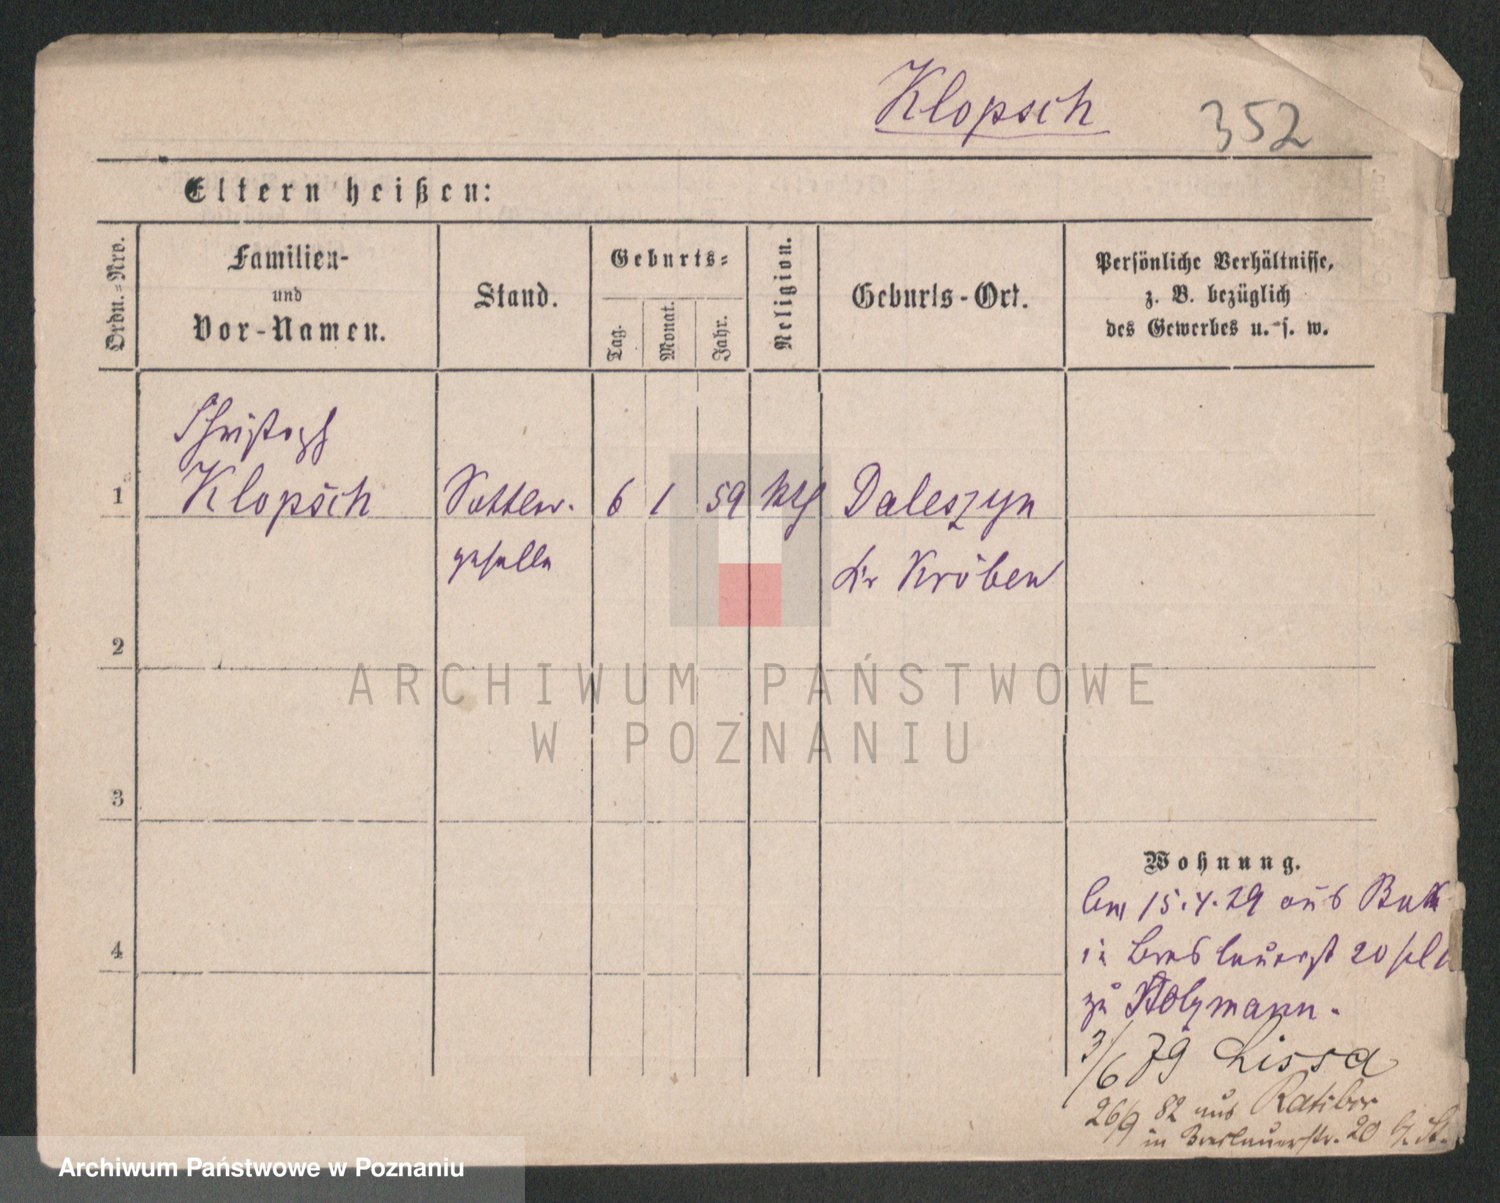 Klopsch
352
Eltern heißen:
Ordn.-Nro.
Familien-
und
Vor-Namen.
Stand.
Geburts-
Tag.
Monat.
Jahr.
Religion.
Geburts-Ort.
Persönliche Verhältnisse,
z. B. bezüglich
des Gewerbes u. s. w.
Christoph
1 Klopsch Sattler- 6 1 59 kth Daleszyn
geselle Kr Kröben
2
3
4
Wohnung.
15.4.79 aus Buk
in Breslauerst 20
zu Holzmann.
3/6 79 Lissa
26/9 82 aus Ratibor
in Breslauerstr. 20
ARCHIWUM PAŃSTWOWE
W POZNANIU
Archiwum Państwowe w Poznaniu